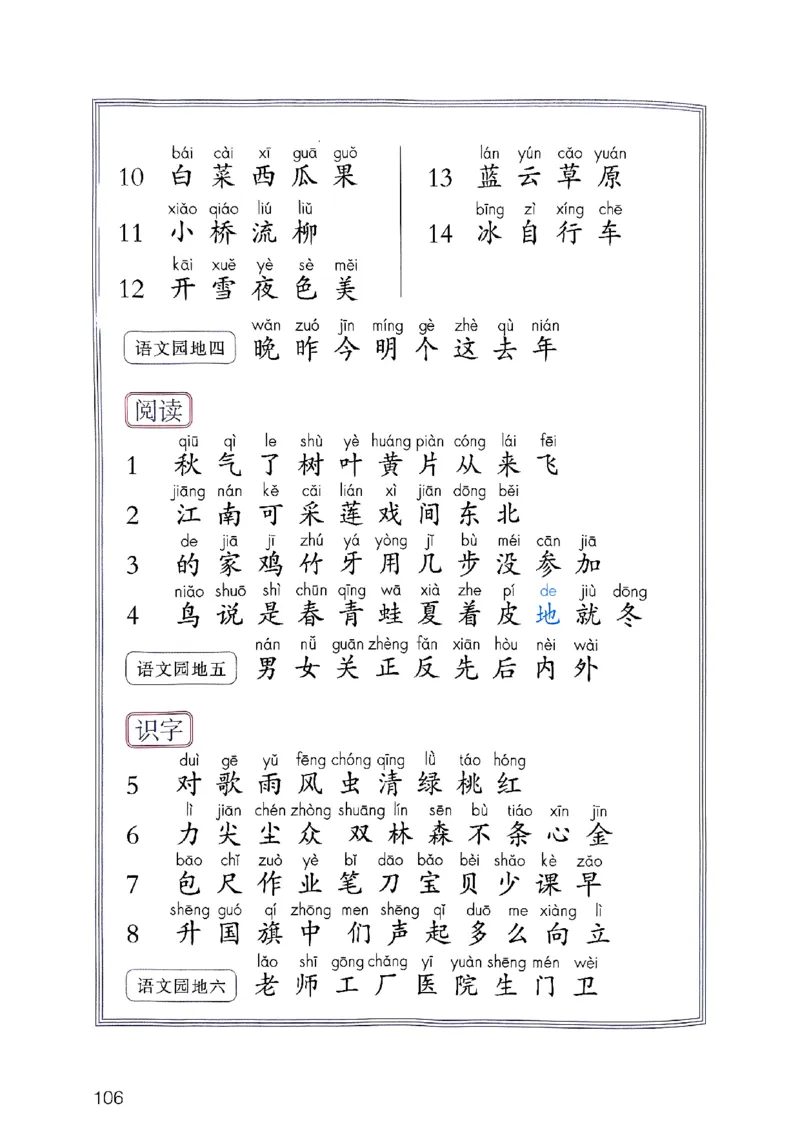 bái cài xī guā guǒ
10 白 菜 西 瓜 果
xiǎo qiáo liú liǔ
11 小 桥 流 柳
kāi xuě yè sè měi
12 开 雪 夜 色 美
lán yún cǎo yuán
13 蓝 云 草 原
bīng zì xíng chē
14 冰 自 行 车
wǎn zuó jīn míng gè zhè qù nián
语文园地四 晚 昨 今 明 个 这 去 年
阅读
qiū qì le shù yè huáng piàn cóng lái fēi
1 秋 气 了 树 叶 黄 片 从 来 飞
jiāng nán kě cǎi lián xì jiān dōng běi
2 江 南 可 采 莲 戏 间 东 北
de jiā jī zhú yá yòng jǐ bù méi cān jiā
3 的 家 鸡 竹 牙 用 几 步 没 参 加
niǎo shuō shì chūn qīng wā xià zhe pí de jiù dōng
4 鸟 说 是 春 青 蛙 夏 着 皮 地 就 冬
nán nǚ guān zhèng fǎn xiān hòu nèi wài
语文园地五 男 女 关 正 反 先 后 内 外
识字
duì gē yǔ fēng chóng qīng lǜ táo hóng
5 对 歌 雨 风 虫 清 绿 桃 红
lì jiān chén zhòng shuāng lín sēn bù tiáo xīn jīn
6 力 尖 尘 众 双 林 森 不 条 心 金
bāo chǐ zuò yè bǐ dāo bǎo bèi shǎo kè zǎo
7 包 尺 作 业 笔 刀 宝 贝 少 课 早
shēng guó qí zhōng men shēng qǐ duō me xiàng lì
8 升 国 旗 中 们 声 起 多 么 向 立
lǎo shī gōng chǎng yī yuàn shēng mén wèi
语文园地六 老 师 工 厂 医 院 生 门 卫
106